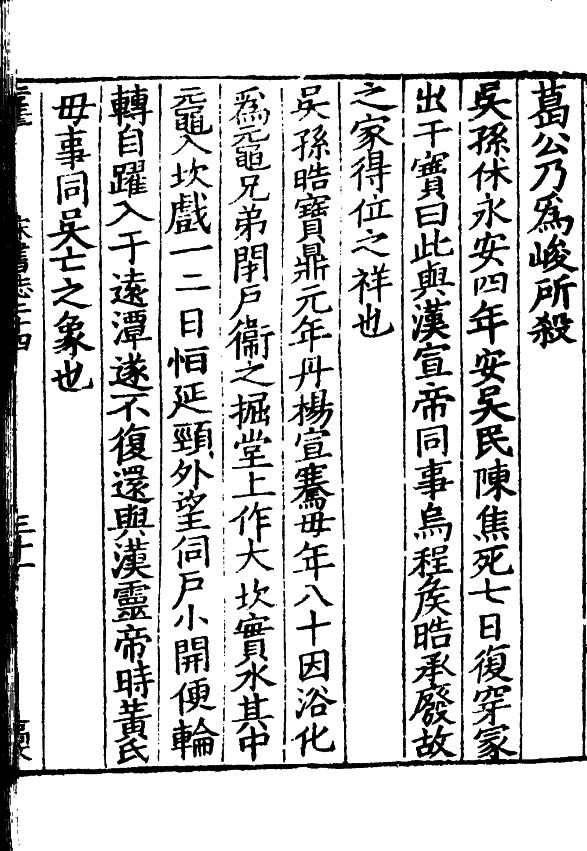 葛公乃爲峻所殺
吳孫休永安四年安吳民陳焦死七日復穿冢
出干寶曰此與漢宣帝同事烏程侯晧承廢故
之家得位之祥也
吳孫晧寶鼎元年丹楊宣騫毋年八十因浴化
爲黿兄弟閉戶衞之掘堂上作大坎實水其中
黿入坎戲一二日恒延頸外望伺戶小開便輪
轉自躍入于遠潭遂不復還與漢靈帝時黄氏
毋事同吳亡之象也
宋書志二十四
三十一